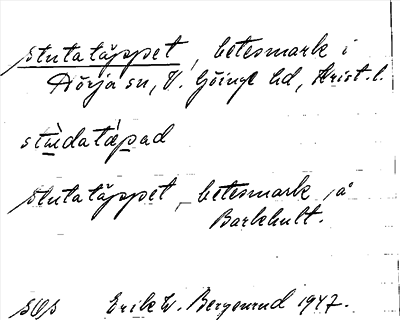 stutatäppet, betesmark i
Nörja sn, V. Göinge hd, Krist. l.
stùdatæpad
stutatäppet, betesmark på
Barkhult.
SOS Erik W. Bergenrud 1947.